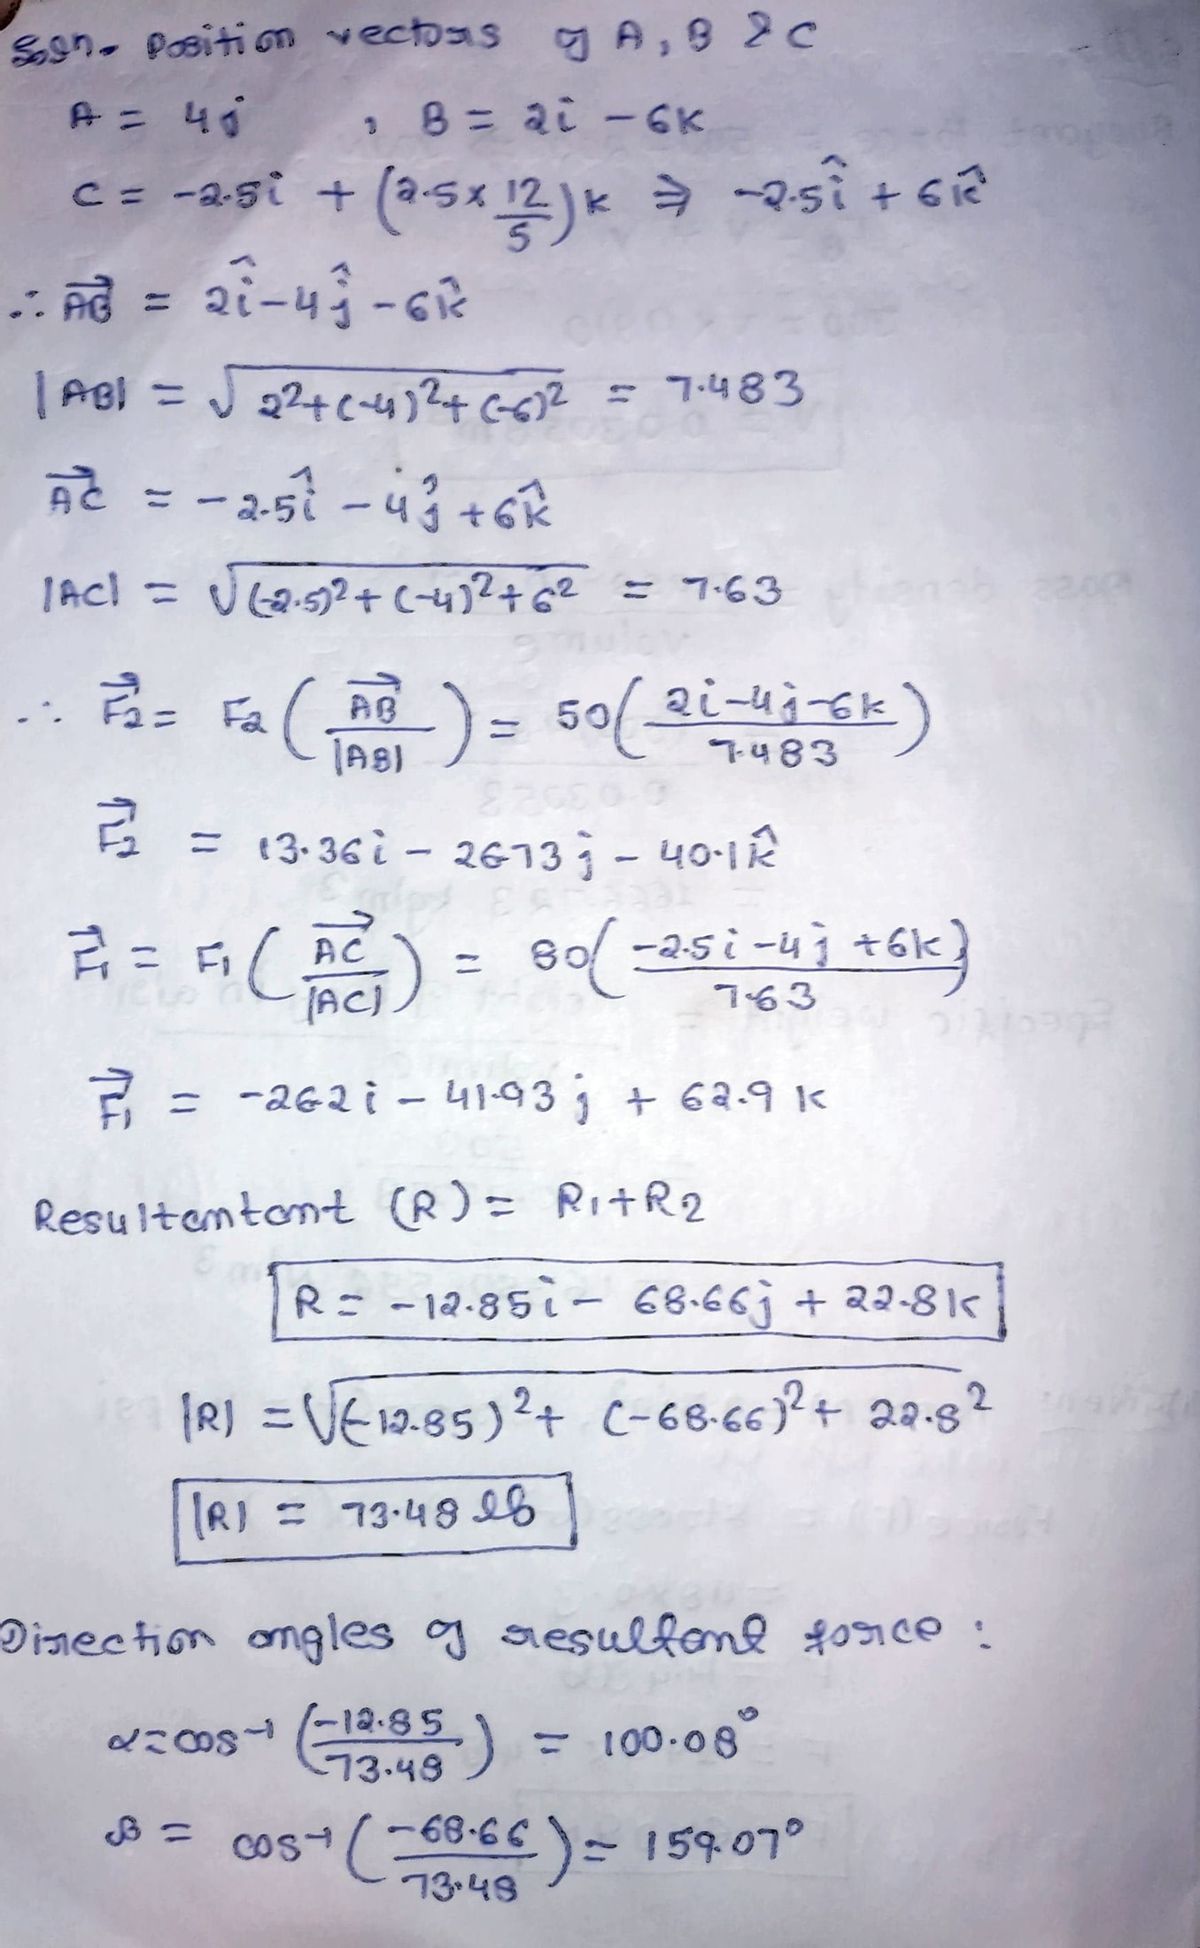 Soln. Position vectors of A, B & C
A = 4j , B = 2i - 6k
C = -2.5i + (2.5 x 12/5)k ⇒ -2.5î + 6k̂
∴ AB⃗ = 2î - 4ĵ - 6k̂
|AB| = √(2² + (-4)² + (-6)²) = 7.483
AC⃗ = -2.5î - 4ĵ + 6k̂
|AC| = √((-2.5)² + (-4)² + 6²) = 7.63
∴ F⃗2 = F2 (AB⃗/|AB|) = 50(2i-4j-6k/7.483)
F⃗2 = 13.36i - 26.73j - 40.1k̂
F⃗1 = F1 (AC⃗/|AC|) = 80(-2.5i-4j+6k/7.63)
F⃗1 = -26.2i - 41.93j + 62.9k
Resultantant (R) = R1+R2
R = -12.85i - 68.66j + 22.8k
|R| = √((-12.85)² + (-68.66)² + 22.8²)
|R| = 73.48 lb
Direction angles of resultant force :
α = cos⁻¹ (-12.85/73.48) = 100.08°
β = cos⁻¹ (-68.66/73.48) = 159.07°